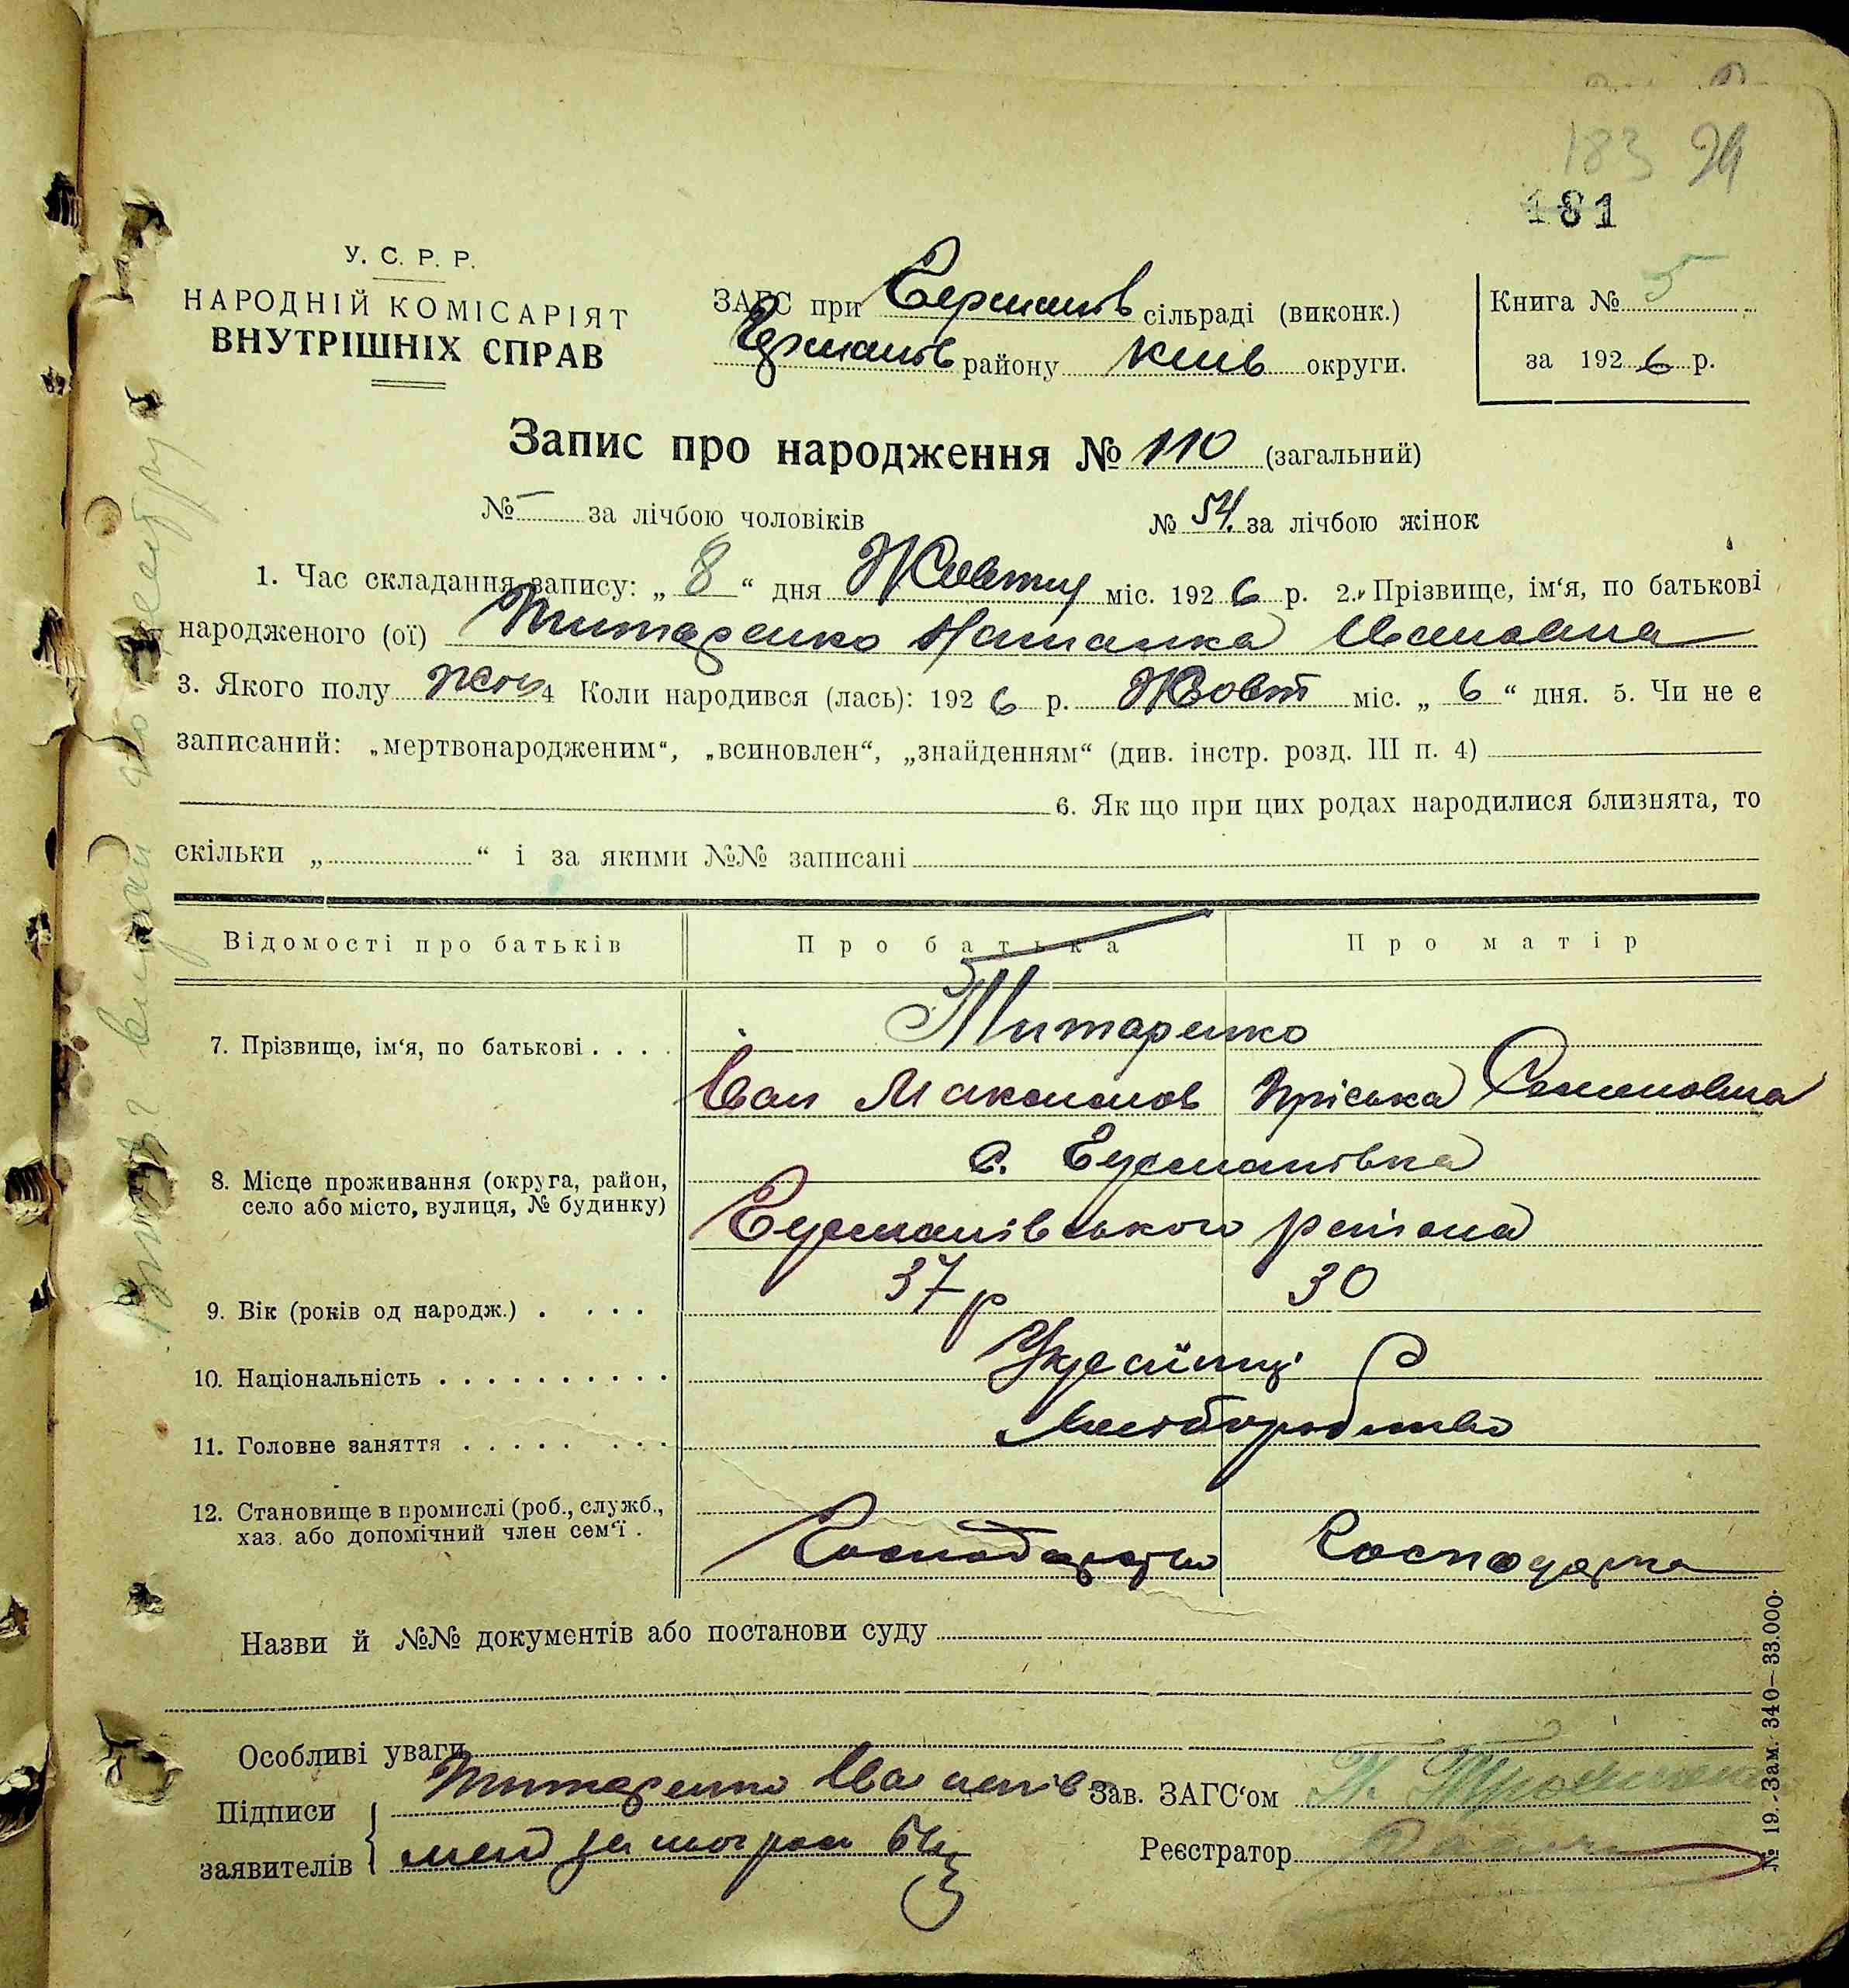 183 24
181
У. С. Р. Р.
НАРОДНІЙ КОМІСАРІЯТ
ВНУТРІШНІХ СПРАВ
ЗАГС при сільраді (виконк.)
району Київ округи.
Книга № 5
за 1926 р.
Запис про народження № 110 (загальний)
№ — за лічбою чоловіків
№ 54. за лічбою жінок
1. Час складання запису: „ 8 “ дня Жовтня міс. 1926 р. 2. Прізвище, ім‘я, по батькові
народженого (ої) Титаренко Наталка Ивановна
3. Якого полу жін 4 Коли народився (лась): 1926 р. Жовт міс. „ 6 “ дня. 5. Чи не є
записаний: „мертвонародженим“, „всиновлен“, „знайденням“ (див. інстр. розд. III п. 4)
6. Як що при цих родах народилися близнята, то
скільки „ “ і за якими №№ записані
Відомості про батьків
Про батька
Про матір
7. Прізвище, ім‘я, по батькові . . . .
Титаренко
Іван Максимов Пріська Семеновна
8. Місце проживання (округа, район,
село або місто, вулиця, № будинку)
с.
района
9. Вік (років од народж.) . . . .
37 р 30
10. Національність . . . . . . . . . .
Українці
11. Головне заняття . . . . . . . .
Хліборобство
12. Становище в промислі (роб., служб.,
хаз. або допомічний член сем‘ї .
Господарка
Назви й №№ документів або постанови суду
Особливі уваги
Підписи
заявителів
Титаренко
Зав. ЗАГС‘ом
Реєстратор
№ 19.-Зам. 340—33.000.